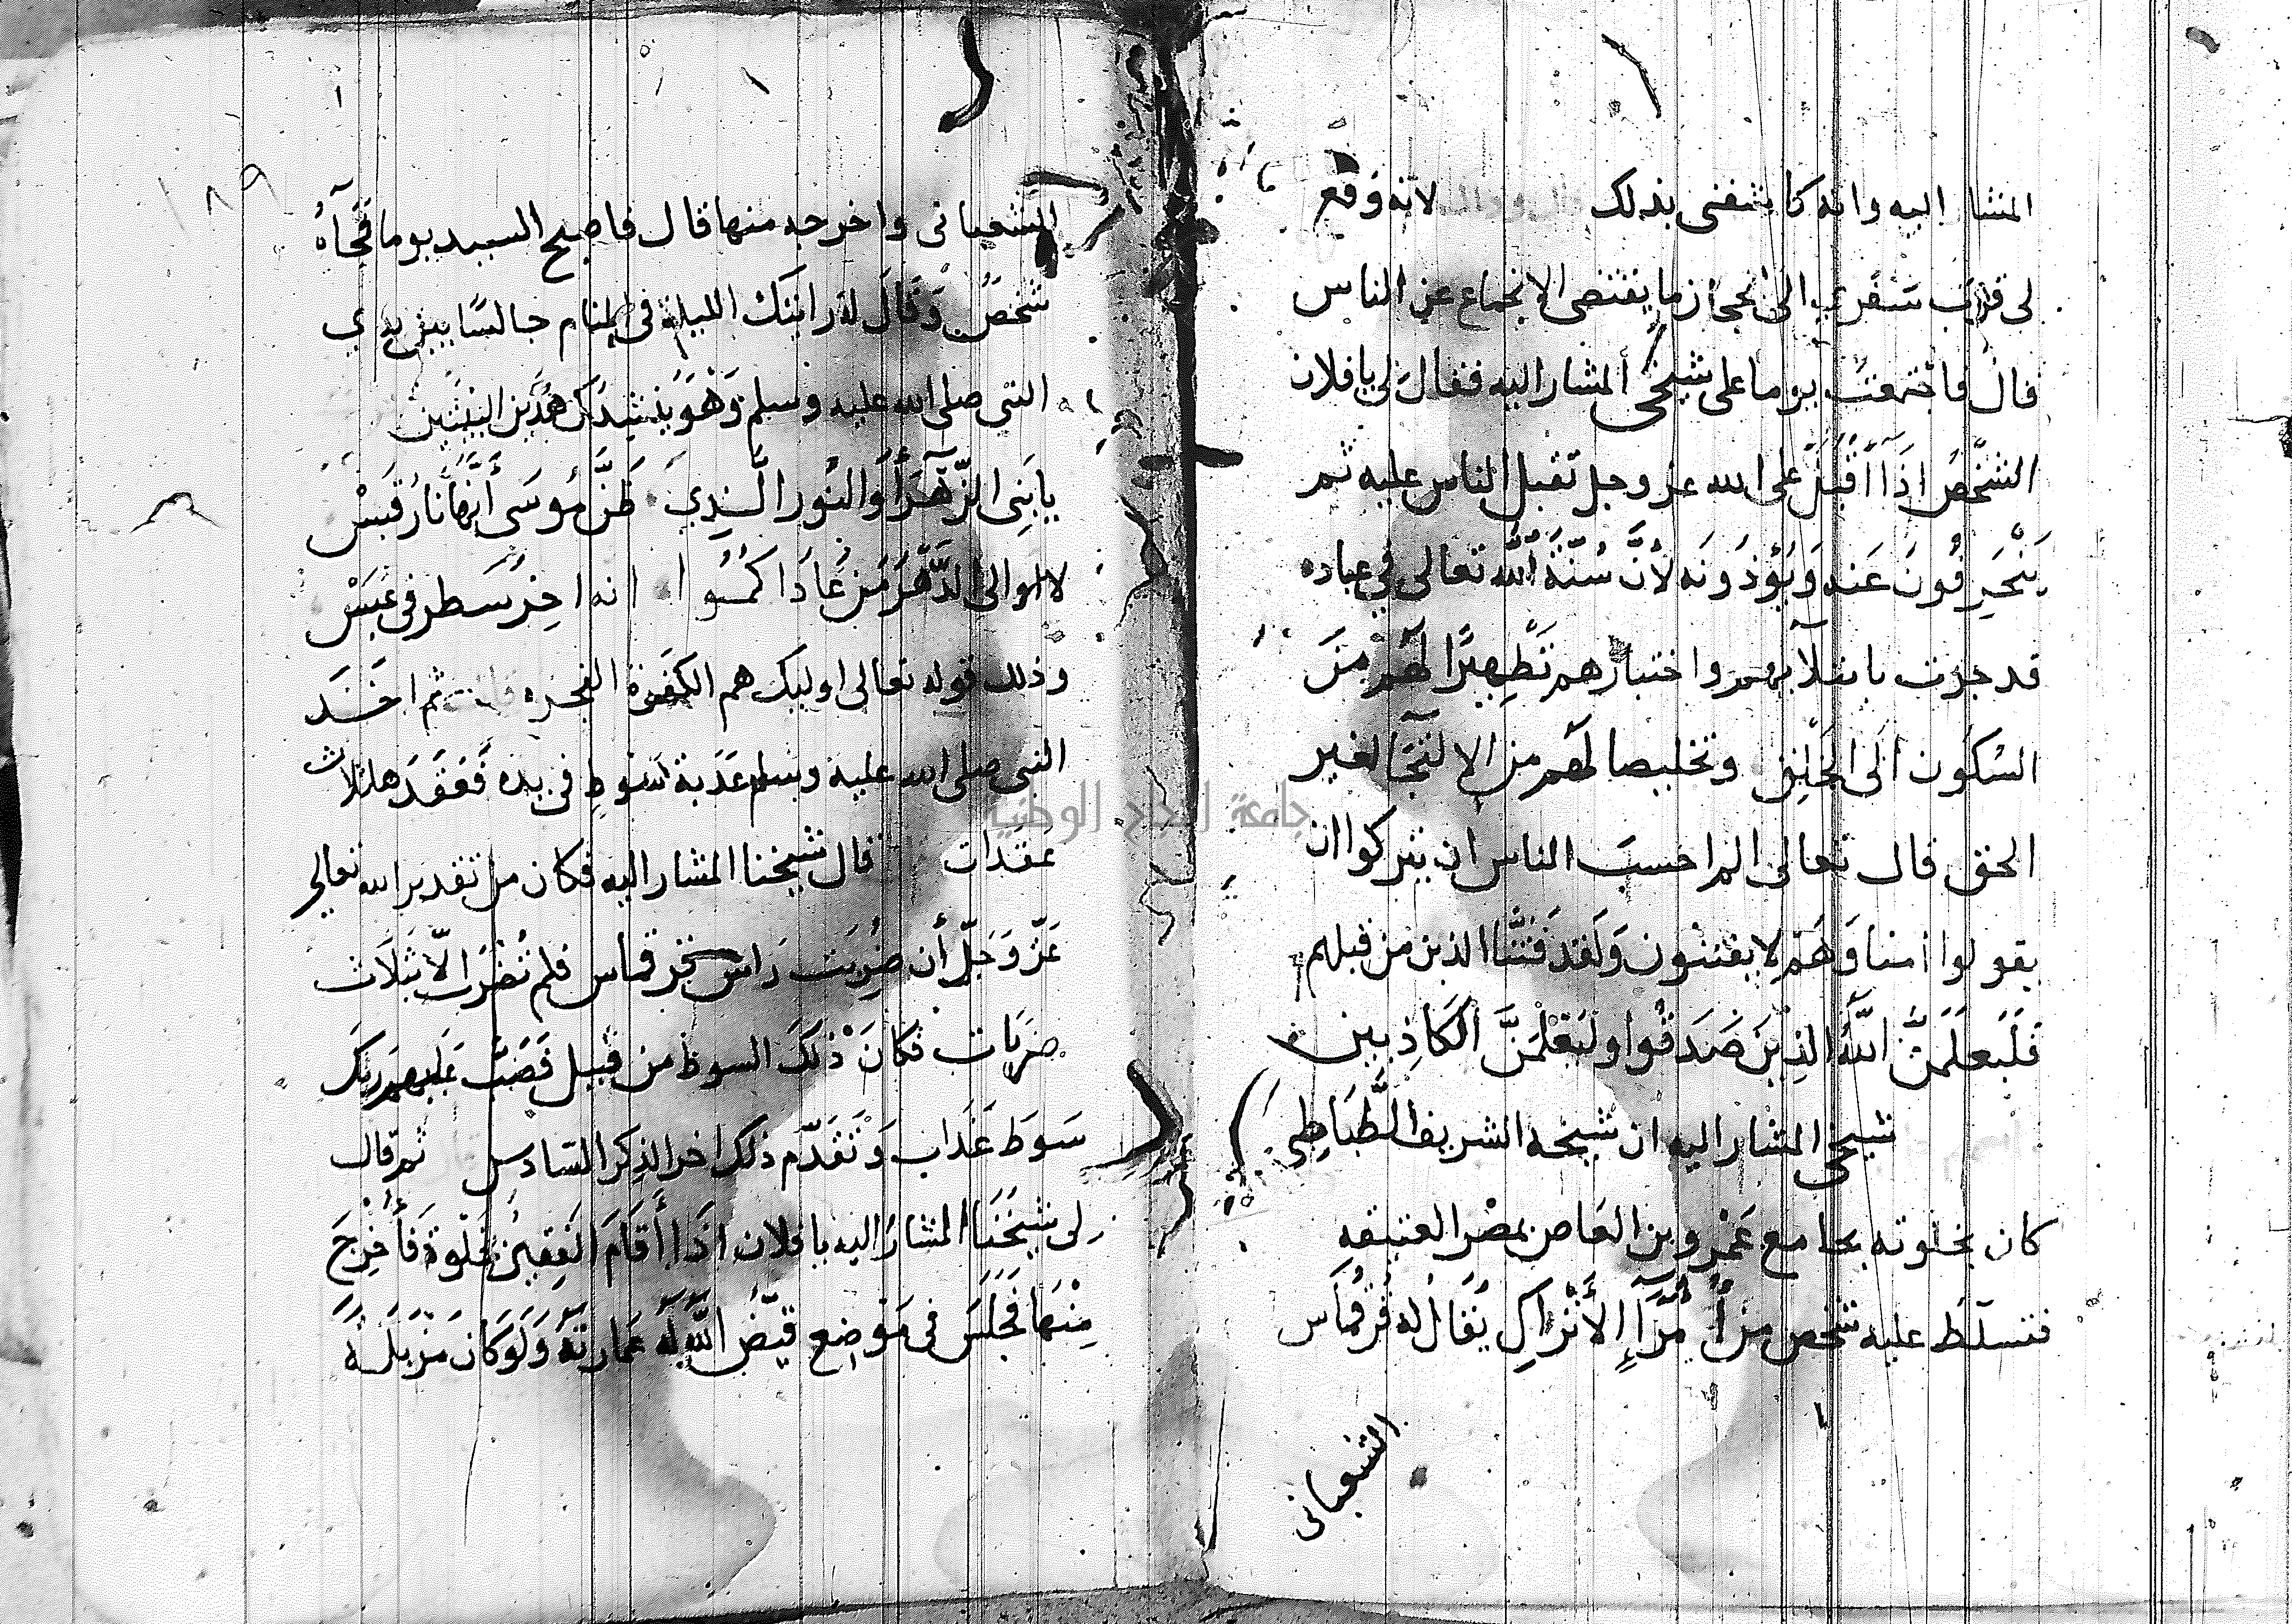 المشار اليه وانه كاشفنى بذلك لانه وقع
لى قرب سفرى الى الحجاز ما يقتضى الانجماع عن الناس
قال فاجتمعت يوما على شيخى المشار اليه فقال لى يا فلان
الشَّخص اذَا اَقْبَلَ على الله عز وجل تقبل الناس عليه ثم
يَنْحَرِفُونَ عَنه وَيُؤذُونَه لأنَّ سُنّةَ اللّه تعالى فى عباده
قد جرت بابتلآيهم واختبارهم تَطْهِيرًا لَهُم مِنَ
السكون الى الخَلق وتخليصا لَهُم من الالتجَا لغير
الحق قال تعالى الم احسبَ الناس ان يتركوا ان
يقولوا امنا وَهُم لا يفتنون وَلَقد فَتَنَّا الذين من قبلهم
فَلَيعلَمَنَّ اللَّهُ الذِينَ صَدَقُوا ولَيَعْلَمَنَّ الكَاذِبين
شيخى المشار اليه ان شيخه الشريف الطَّبَاطِبى
كان بخلوته بجامع عَمْرو بن العَاص بمصْر العتيقه
فتسلّطَ عليه شخص من أُمَرَآءِ الأَتْرَاكِ يُقَالُ له قُرقُمَاس
الشعبانى
١٨٩
الشعبانى واخرجه منها قال فاصبح السيد يوما فجَآهُ
شخصٌ وَقَالَ له رايتك الليلة فى المنام جالسًا بين يدي
النبى صلى الله عليه وسلم وَهُوَ يُنشِدُكَ هَذَين البيْتَيْن
يا بَنِى الزّهْرَآ وَالنُور الَّذِي ظَنَّ مُوسَى أَنّهَا نَارُ قَبَسْ
لا اوالى الدَّهْرَ مَن عَادَاكمُوا انه اخِرُ سَطر فى عَبَسْ
وذلك قوله تعالى اوليك هم الكفرة الفجره ثم اخَذ
النبى صلى الله عليه وسلم عَذَبة سَوطٍ فى يده فَعَقَدَهَا ثلاث
عقَدات قال شيخنا المشار اليه فكان من تقدير الله تعالى
عَزّ وَجَلّ أن ضُرِبَت رَاس قرقماس فلم تُضْرَب الّا بثَلَاث
ضرَبات فكانَ ذلكَ السوط من قبيل فَصَبَّ عَليهم ربّكَ
سَوطَ عَذَاب وَتَقَدّم ذلك اخر الذِكر السَادس ثم قال
لى شيخَنَا المشارُ اليه يا فلان اذَا أَقَامَ الفقِيرُ بخَلوة فَأُخْرِجَ
مِنْهَا فَجَلَسَ فى مَوضِع قَيّضَ اللَّهُ لَهُ عَمَارتَهُ وَلَو كَانَ مَزْبَلَةً